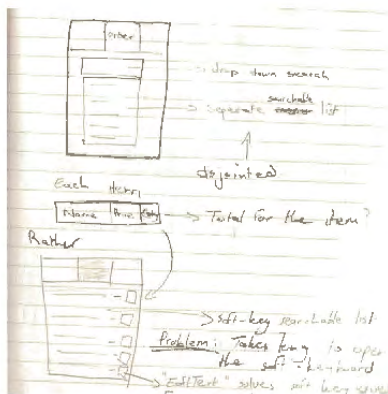 order
drop down search
searchable
seperate list
disjointed
Each
Name Price Qty
Total for the item?
Rather
soft-key searchable list
Problem: Takes long to open
the soft-keyboard
"EditText" solves soft key